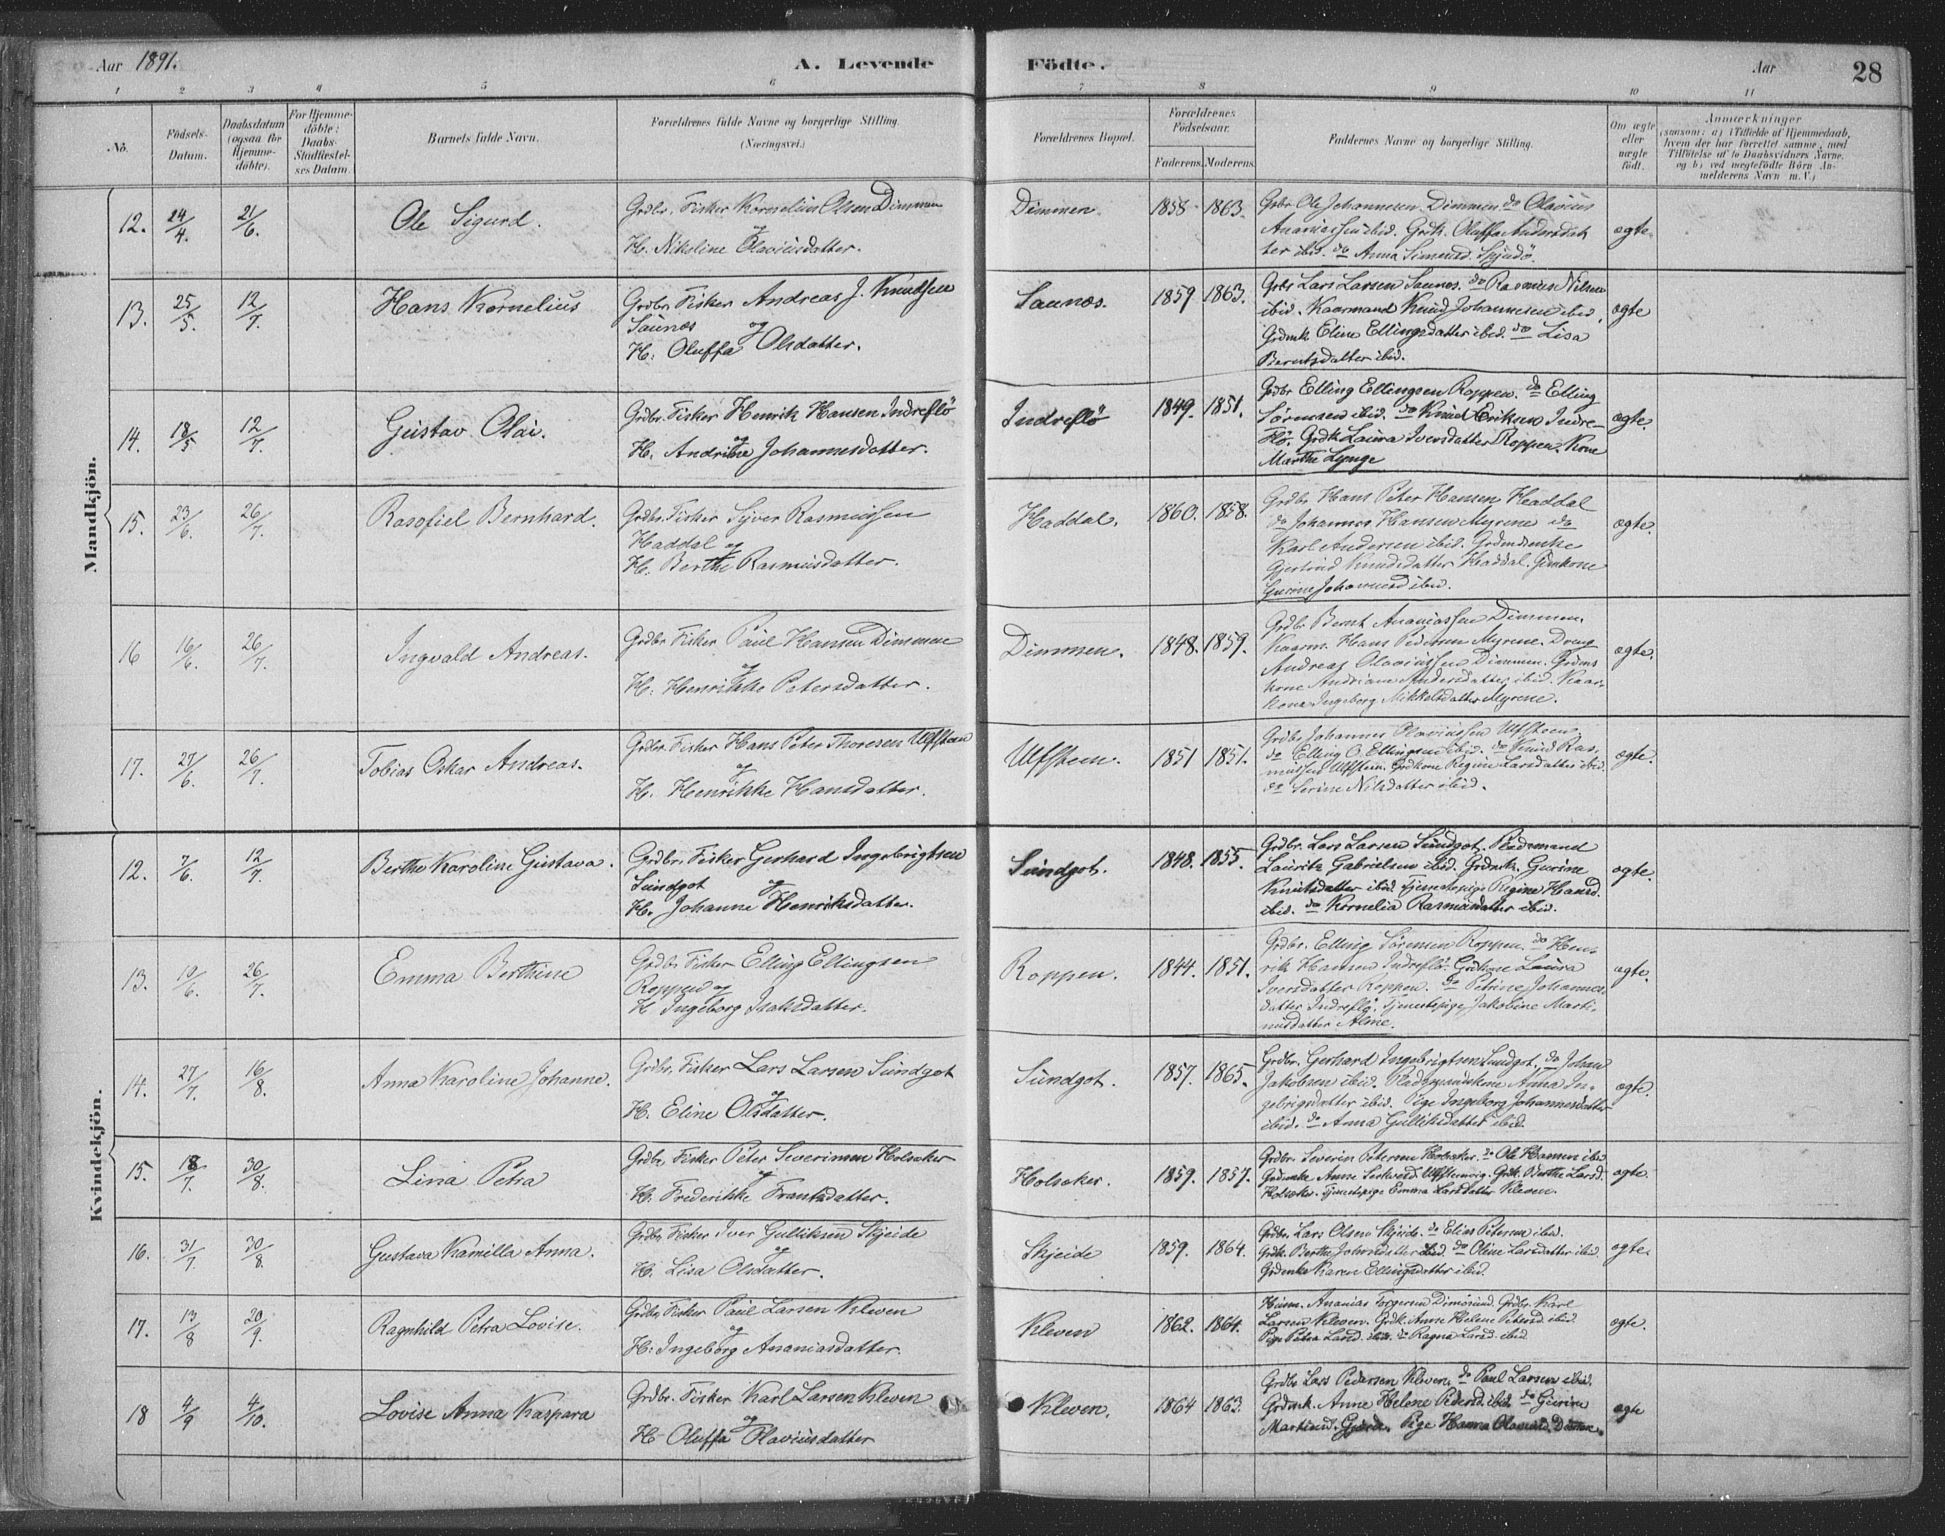 Aar 1891. A. Levende Födte. Aar 28
1 2 3 4 5 6 7 8 9 10 11
No. Födsels-Datum. Daabsdatum (ogsaa for Hjemme-döbte). For Hjemme-döbte: Daabs-Stadfæstel-ses Datum. Barnets fulde Navn. Forældrenes fulde Navne og borgerlige Stilling. (Næringsvei.) Forældrenes Bopæl. Forældrenes Födselsaar. Faderens. Moderens. Faddernes Navne og borgerlige Stilling. Om ægte eller uægte födt. Anmærkninger (saasom: a) i Tilfælde af Hjemmedaab, hvem der har forrettet samme, med Tilföielse af to Daabsvidners Navne, og b) ved uægtefödte Börn An-melderens Navn m. V.)
Mandkjön.
12. 24/4 21/6. Ole Sigurd. Grdbr. Fisker Kornelius Olsen Dimmen
og
H. Nikoline Olaviusdatter.
Dimmen. 1858 1863.
Grbr. Ole Johannesen Dimmen do Olavius
Ananiassen ibid. Grdk. Oluffa Andersdat
ter ibid. do Anna Simensd. Skjudö. ægte.
13. 25/5. 12/7. Hans Kornelius Grdbr. Fisker Andreas J. Knudsen
Saunæs og
H. Oluffa Olsdatter.
Saunæs. 1859 1863.
Grbr. Lars Larsen Saunæs. do Rasmus Nilsen
ibid. Kaarmand Knud Johannesen ibid.
Grdmk. Eline Ellingsdatter ibid. do Lisa
Berntsdatter ibid. ægte
14. 18/5 12/7. Gustav Olai. Grdbr. Fisker Henrik Hansen Indreflö
og
H. Andrine Johannesdatter.
Indreflö 1849. 1851.
Grdbr. Elling Ellingsen Roppen. do Elling
Sörensen ibid. do Knud Eriksen Indre-
flö. Grdk. Laura Iversdatter Roppen. Kone
Marthe Lynge ægte.
15. 23/6. 26/7. Rasofiel Bernhard. Grdbr. Fisker Syver Rasmussen
Haddal og
H. Berthe Rasmusdatter.
Haddal. 1860. 1858.
Grdbr. Hans Peter Hansen Haddal
do Johannes Hansen Myrene do
Karl Andersen ibid. Grdmdsenke
Gjertrud Knudsdatter Haddal. Gmkone
Gurine Johannesd ibid. ægte.
16 16/6. 26/7. Ingvald Andreas. Grdbr. Fisker Paul Hansen Dimmen
og
H. Henrikke Petersdatter.
Dimmen. 1848. 1859.
Grdbr. Bernt Ananiassen Dimmen.
Kaarm. Hans Pedersen Myrene. Dreng
Andreas Olaviussen Dimmen. Grdms
kone Andriane Andersdatter ibid. Kaar-
kone Ingeborg Mikkelsdatter Myrene. ægte.
17. 27/6. 26/7. Tobias Oskar Andreas. Grdbr. Fisker Hans Peter Thoresen Ulfsteen
og
H. Henrikke Hansdatter.
Ulfsteen. 1851 1851.
Grdbr. Johannes Olaviussen Ulfsteen.
do Elling O. Ellingsen ibid. do Knud Ras-
mussen Ulfsteen. Grdkone Regine Larsdatter ibid.
do Serine Nilsdatter ibid. ægte.
Kvindekjön.
12. 7/6. 12/7. Berthe Karoline Gustava. Grdbr. Fisker Gerhard Ingebrigtsen
Sundgot og
H. Johanne Henriksdatter.
Sundgot. 1848. 1855.
Grdbr. Lars Larsen Sundgot. Pladsmand
Lauritz Gabrielsen ibid. Grdmk. Gurine
Knutsdatter ibid. Tjenestepige Regine Hansd.
ibid. do Kornelia Rasmusdatter ibid. ægte.
13. 10/6. 26/7. Emma Berthine Grdbr. Fisker Elling Ellingsen
Roppen og
H. Ingeborg Isaksdatter.
Roppen. 1844. 1851.
Grdbr. Elling Sörensen Roppen. do Hen-
rik Hansen Indreflö. Grdkone Laura
Iversdatter Roppen. do Petrine Johannes
datter Indreflö. Tjenestepige Jakobine Marti-
nusdatter Alme. ægte.
14. 27/7. 16/8. Anna Karoline Johanne. Grdbr. Fisker Lars Larsen Sundgot
og
H. Eline Olsdatter.
Sundgot. 1857. 1865.
Grdbr. Gerhard Ingebrigtsen Sundgot. do Johan
Jakobsen ibid. Pladsmandskone Anna In-
gebrigsdatter ibid. Pige Ingeborg Johannesdatter
ibid. do Anna Gulliksdatter ibid. ægte.
15. 18/7. 30/8. Lina Petra Grdbr. Fisker Peter Severinsen Holsaker
og
H. Frederikke Frantsdatter.
Holsaker. 1859. 1857.
Grdbr. Severin Petersen Holsaker. do Ole Hansen ibid
Grdmk. Anne Ulfstenvig. Grdk. Berthe Larsd.
Holsaker. Tjenestepige Emma Larsdatter Kleven. ægte.
16. 31/7. 30/8. Gustava Kamilla Anna. Grdbr. Fisker Iver Gulliksen Skjeide
og
H. Lisa Olsdatter.
Skjeide 1859. 1864.
Grdbr. Lars Olsen Skjeide. do Elias Petersen ibid.
Grdk. Berthe Johnsdatter ibid. do Oline Larsdatter ibid.
Grdenke Karen Ellingsdatter ibid. ægte.
17. 13/8 20/9. Ragnhild Petra Lovise. Grdbr. Fisker Paul Larsen Kleven
og
H. Ingeborg Ananiasdatter.
Kleven 1862. 1864.
Huusm. Ananias Torgersen Dimösund. Grdbr. Karl
Larsen Kleven. Grdk. Anne Helene Petersd ibid.
Pige Petra Larsd. ibid. do Ragna Larsd. ibid. ægte.
18 4/9 4/10. Lovise Anna Kaspara Grdbr. Fisker Karl Larsen Kleven
og
H. Oluffa Olaviusdatter
Kleven. 1864 1863.
Grdbr. Lars Pedersen Kleven. do Paul Larsen ibid.
Grdmk. Anne Helene Pedersd. ibid. do Gurine
Martinusd. Pige Hanna ægte